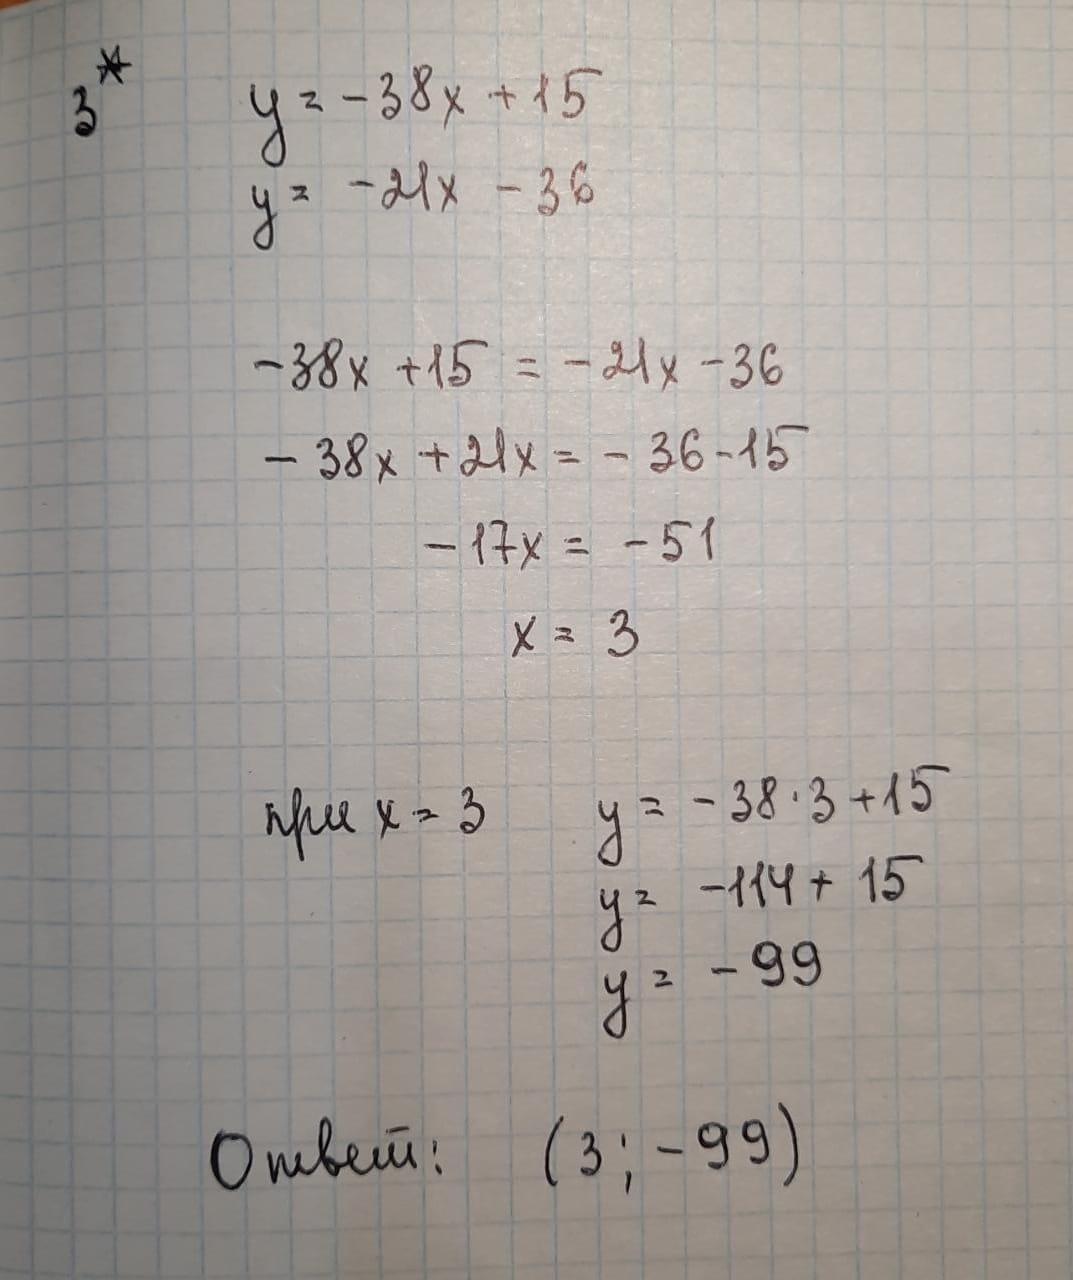 3*
y = -38x + 15
y = -21x - 36
-38x + 15 = -21x - 36
- 38x + 21x = - 36 - 15
-17x = -51
x = 3
при x = 3 y = - 38 · 3 + 15
y = -114 + 15
y = - 99
Ответ: (3; -99)